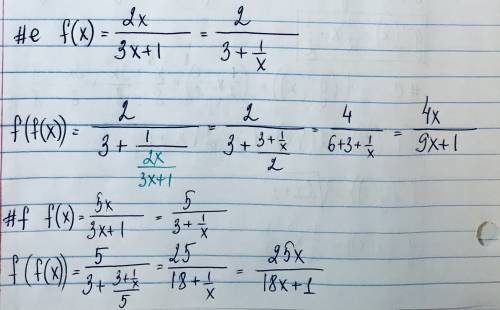 #e f(x) = 2x/(3x+1) = 2/(3 + 1/x)
f(f(x)) = 2/(3 + 1/(2x/(3x+1))) = 2/(3 + (3 + 1/x)/2) = 4/(6+3+1/x) = 4x/(9x+1)
#f f(x) = 5x/(3x+1) = 5/(3 + 1/x)
f(f(x)) = 5/(3 + (3 + 1/x)/5) = 25/(18 + 1/x) = 25x/(18x+1)